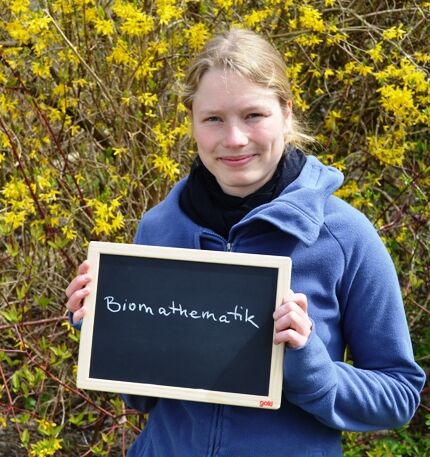 Biomathematik
goki